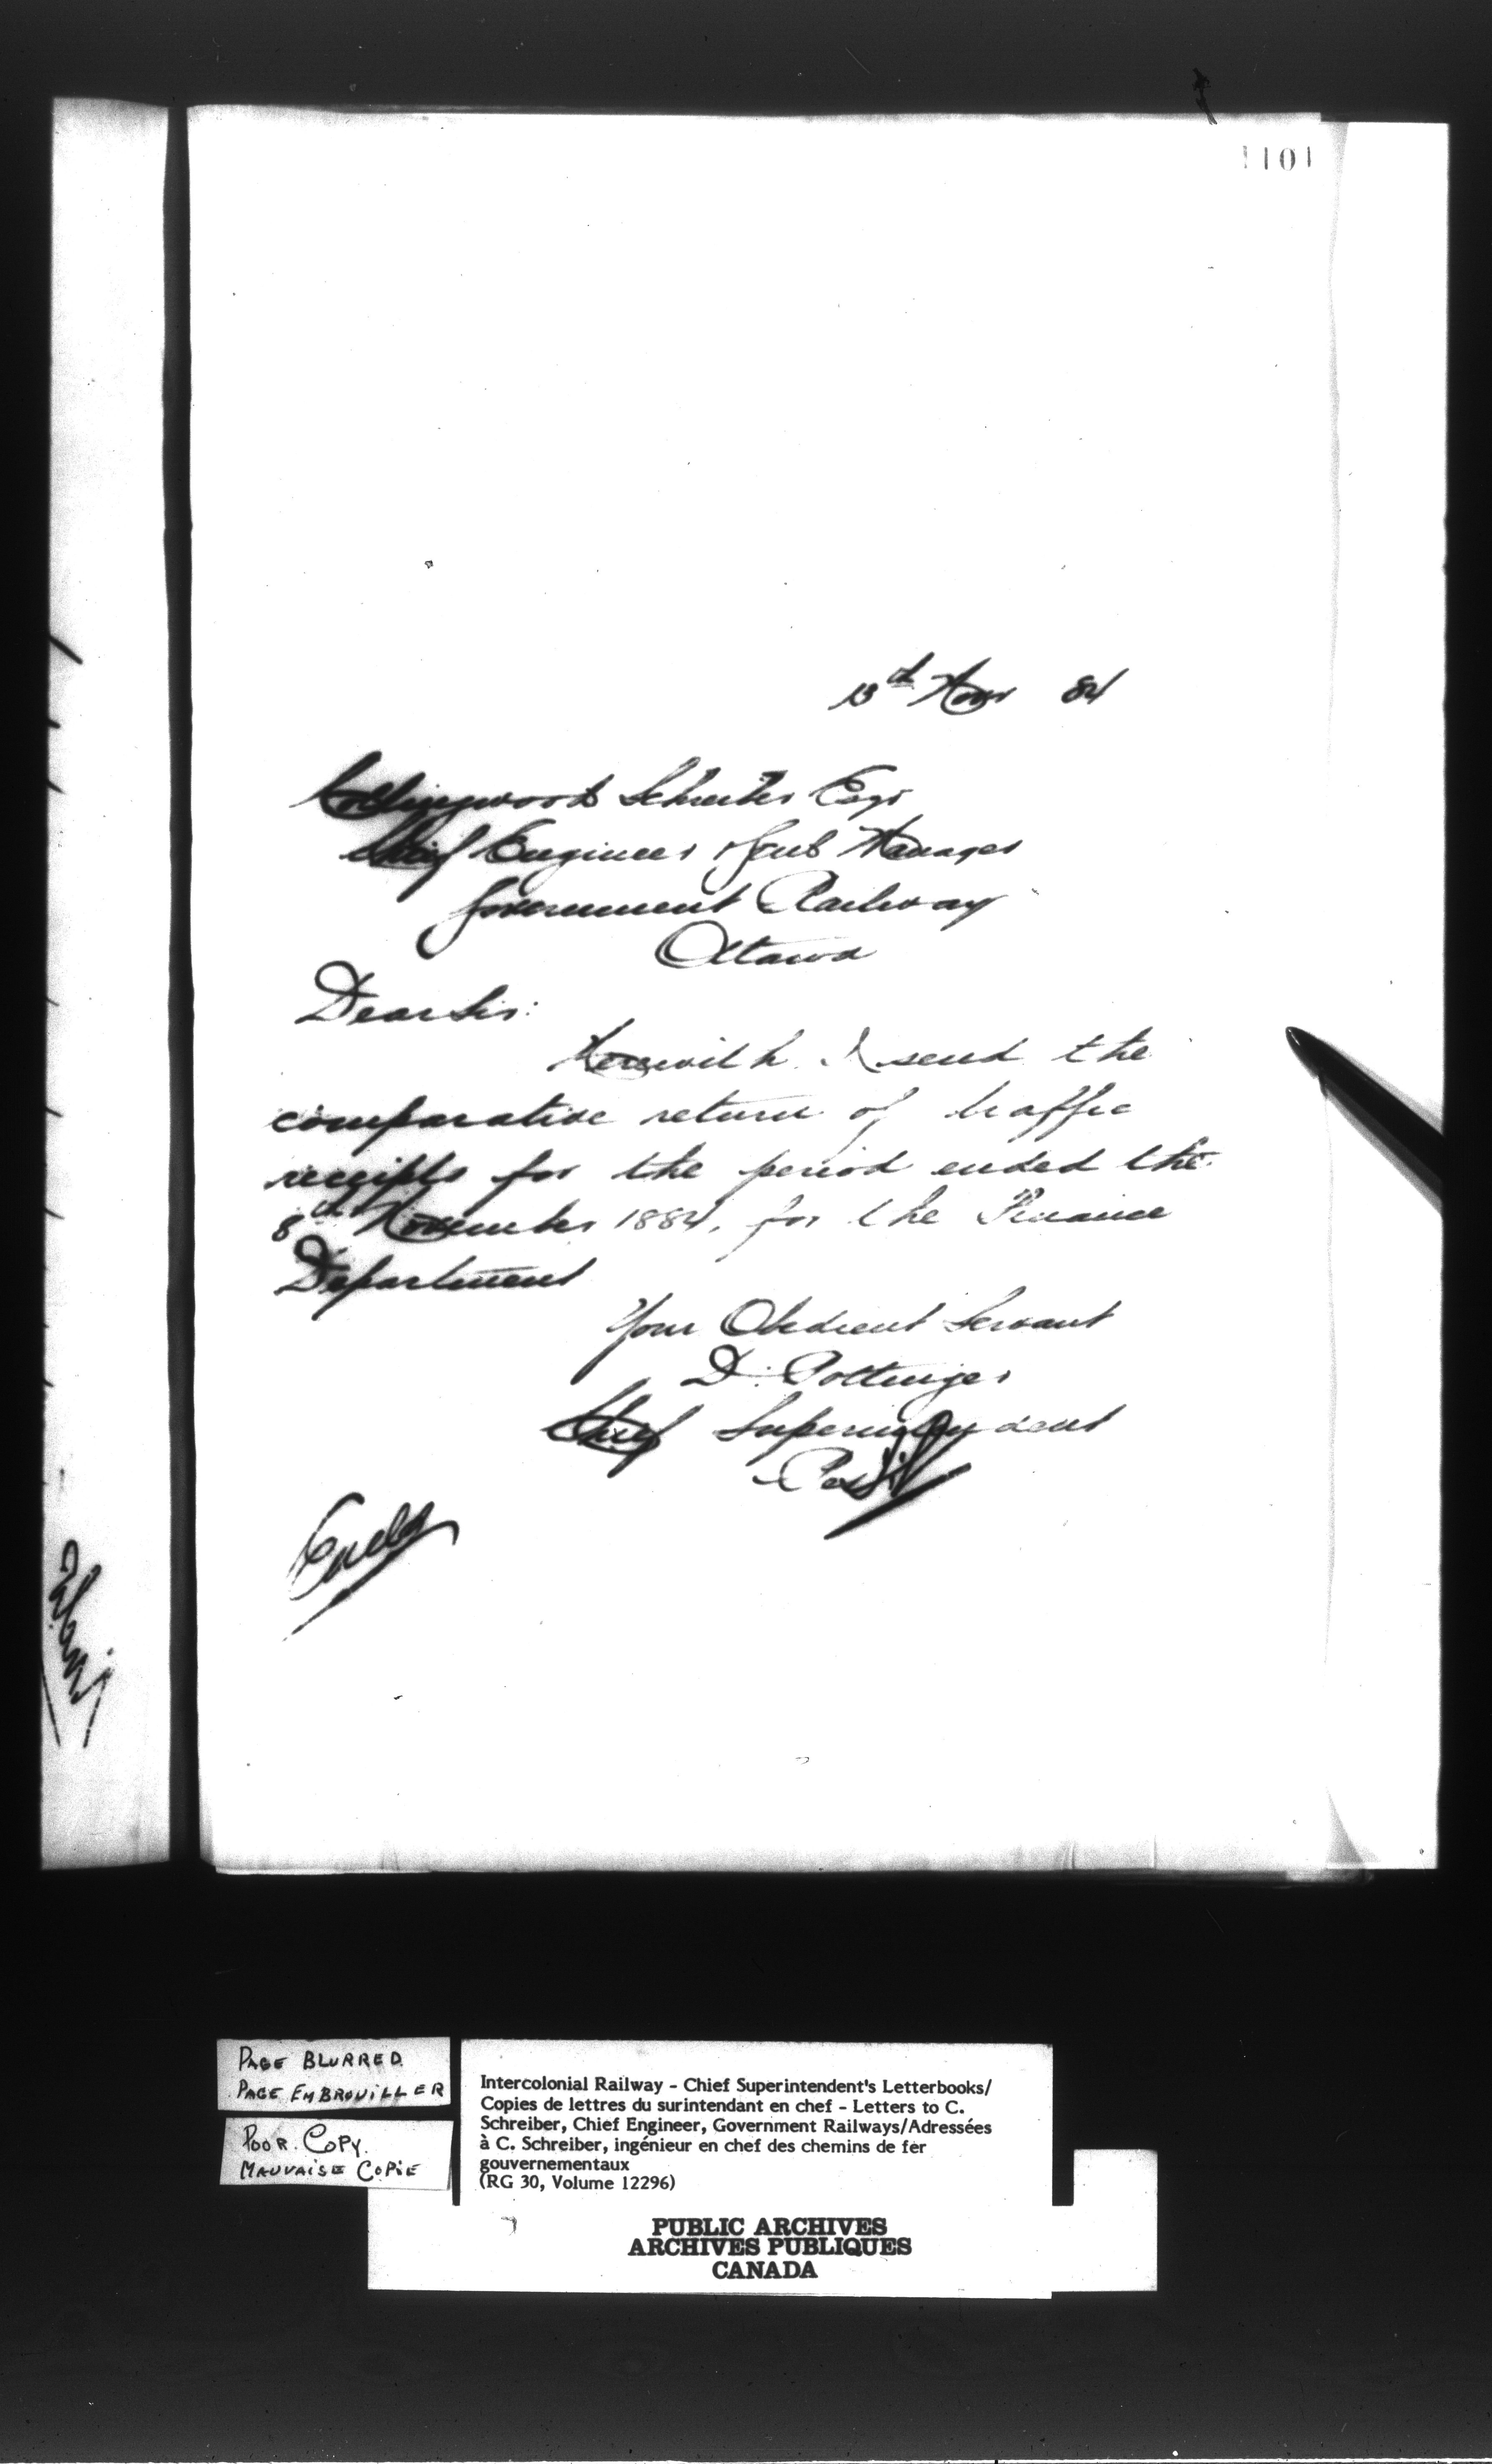 1101
13th Novr 84
Collingwood Schreiber Esqr
Chief Engineer & Genl Manager
Government Railway
Ottawa
Dear Sir:
Herewith I send the
comparative return of traffic
receipts for the period ended the
8th November 1884, for the Finance
Department
Your Obedient Servant
D. Pottinger
Chief Superintendent
PAGE BLURRED
PAGE EMBROUILLER
POOR COPY.
MAUVAISE COPIE
Intercolonial Railway - Chief Superintendent's Letterbooks/
Copies de lettres du surintendant en chef - Letters to C.
Schreiber, Chief Engineer, Government Railways/Adressées
à C. Schreiber, ingénieur en chef des chemins de fer
gouvernementaux
(RG 30, Volume 12296)
PUBLIC ARCHIVES
ARCHIVES PUBLIQUES
CANADA